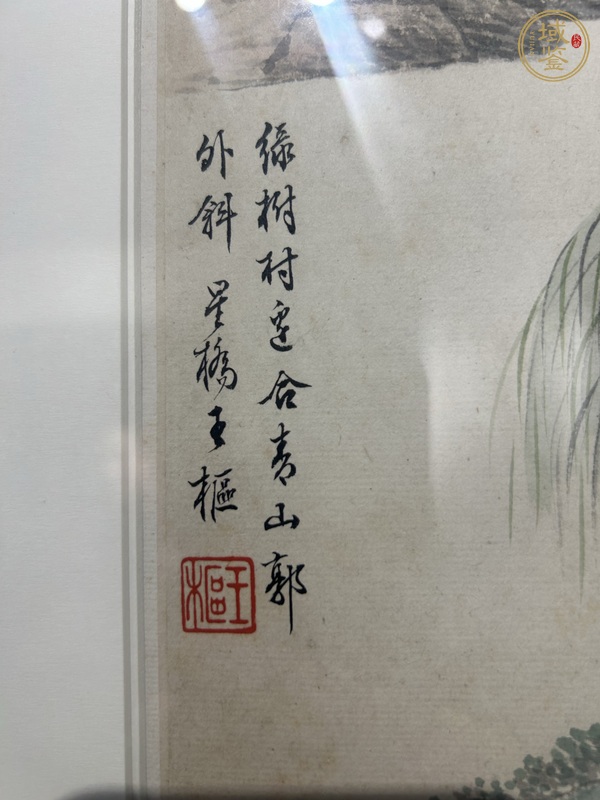 緑樹村邊合青山郭
外斜 星橋王樞
王樞
域鑒